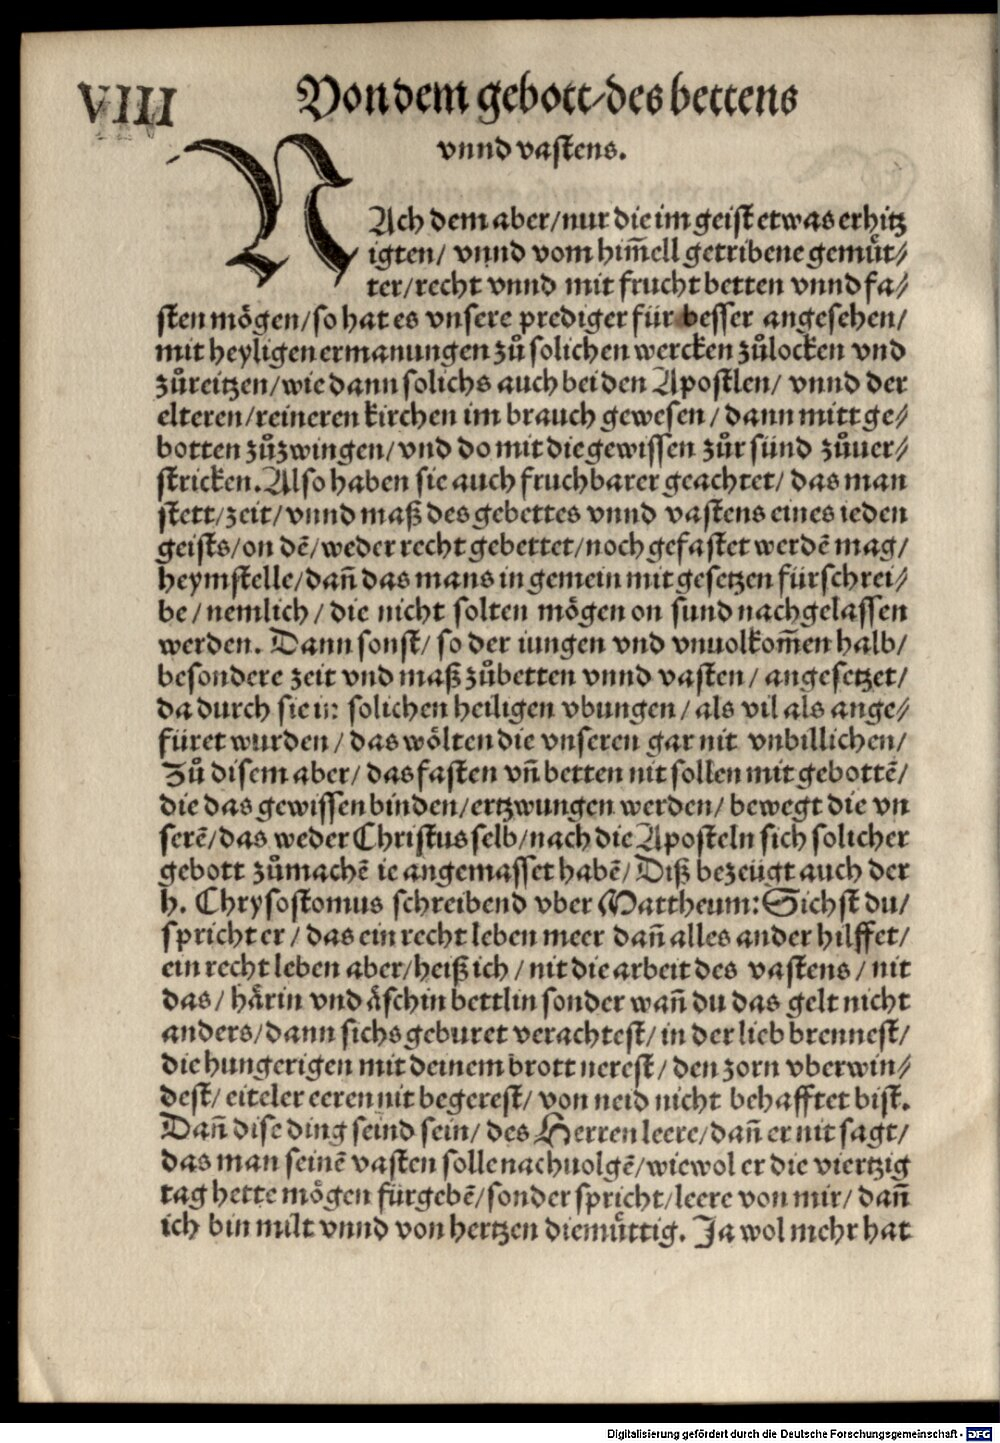 VIII
Von dem gebott/des bettens
vnnd vastens.
NAch dem aber/nur die im geist etwas erhitz
igten/ vnnd vom him̃ell getribene gemuͤt/
ter/recht vnnd mit frucht betten vnnd fa/
sten moͤgen/so hat es vnsere prediger für besser angesehen/
mit heyligen ermanungen zuͦ solichen wercken zuͦlocken vnd
zuͦreitzen/wie dann solichs auch bei den Apostlen/ vnnd der
elteren/reineren kirchen im brauch gewesen/dann mitt ge/
botten zuͦzwingen/vnd do mit die gewissen zuͦr sünd zuͦuer/
stricken.Also haben sie auch fruchbarer geachtet/das man
stett/zeit/vnnd maß des gebettes vnnd vastens eines ieden
geists/on dẽ/weder recht gebettet/noch gefastet werdẽ mag/
heymstelle/dañ das mans in gemein mit gesetzen fürschrei/
be/nemlich/die nicht solten moͤgen on sund nachgelassen
werden. Dann sonst/so der iungen vnd vnuolkom̃en halb/
besondere zeit vnd maß zuͦbetten vnnd vasten/angesetzet/
da durch sie in solichen heiligen vbungen/als vil als ange/
füret wurden/das woͤlten die vnseren gar nit vnbillichen/
Zuͦ disem aber/das fasten vñ betten nit sollen mit gebottẽ/
die das gewissen binden/ertzwungen werden/bewegt die vn
serẽ/das weder Christus selb/nach die Aposteln sich solicher
gebott zuͦmachẽ ie angemasset habẽ/Diß bezeügt auch der
h. Chrysostomus schreibend vber Mattheum:Sichst du/
spricht er/das ein recht leben meer dañ alles ander hilffet/
ein recht leben aber/heiß ich/nit die arbeit des vastens/nit
das/haͤrin vnd aͤschin bettlin sonder wañ du das gelt nicht
anders/dann sichs geburet verachtest/in der lieb brennest/
die hungerigen mit deinem brott nerest/den zorn vberwin/
dest/eiteler eeren nit begerest/von neid nicht behafftet bist.
Dañ dise ding seind sein/des Herren leere/dañ er nit sagt/
das man seinẽ vasten solle nachuolgẽ/wiewol er die viertzig
tag hette moͤgen fürgebẽ/sonder spricht/leere von mir/dañ
ich bin milt vnnd von hertzen diemuͤttig. Ja wol mehr hat
Digitalisierung gefördert durch die Deutsche Forschungsgemeinschaft - DFG